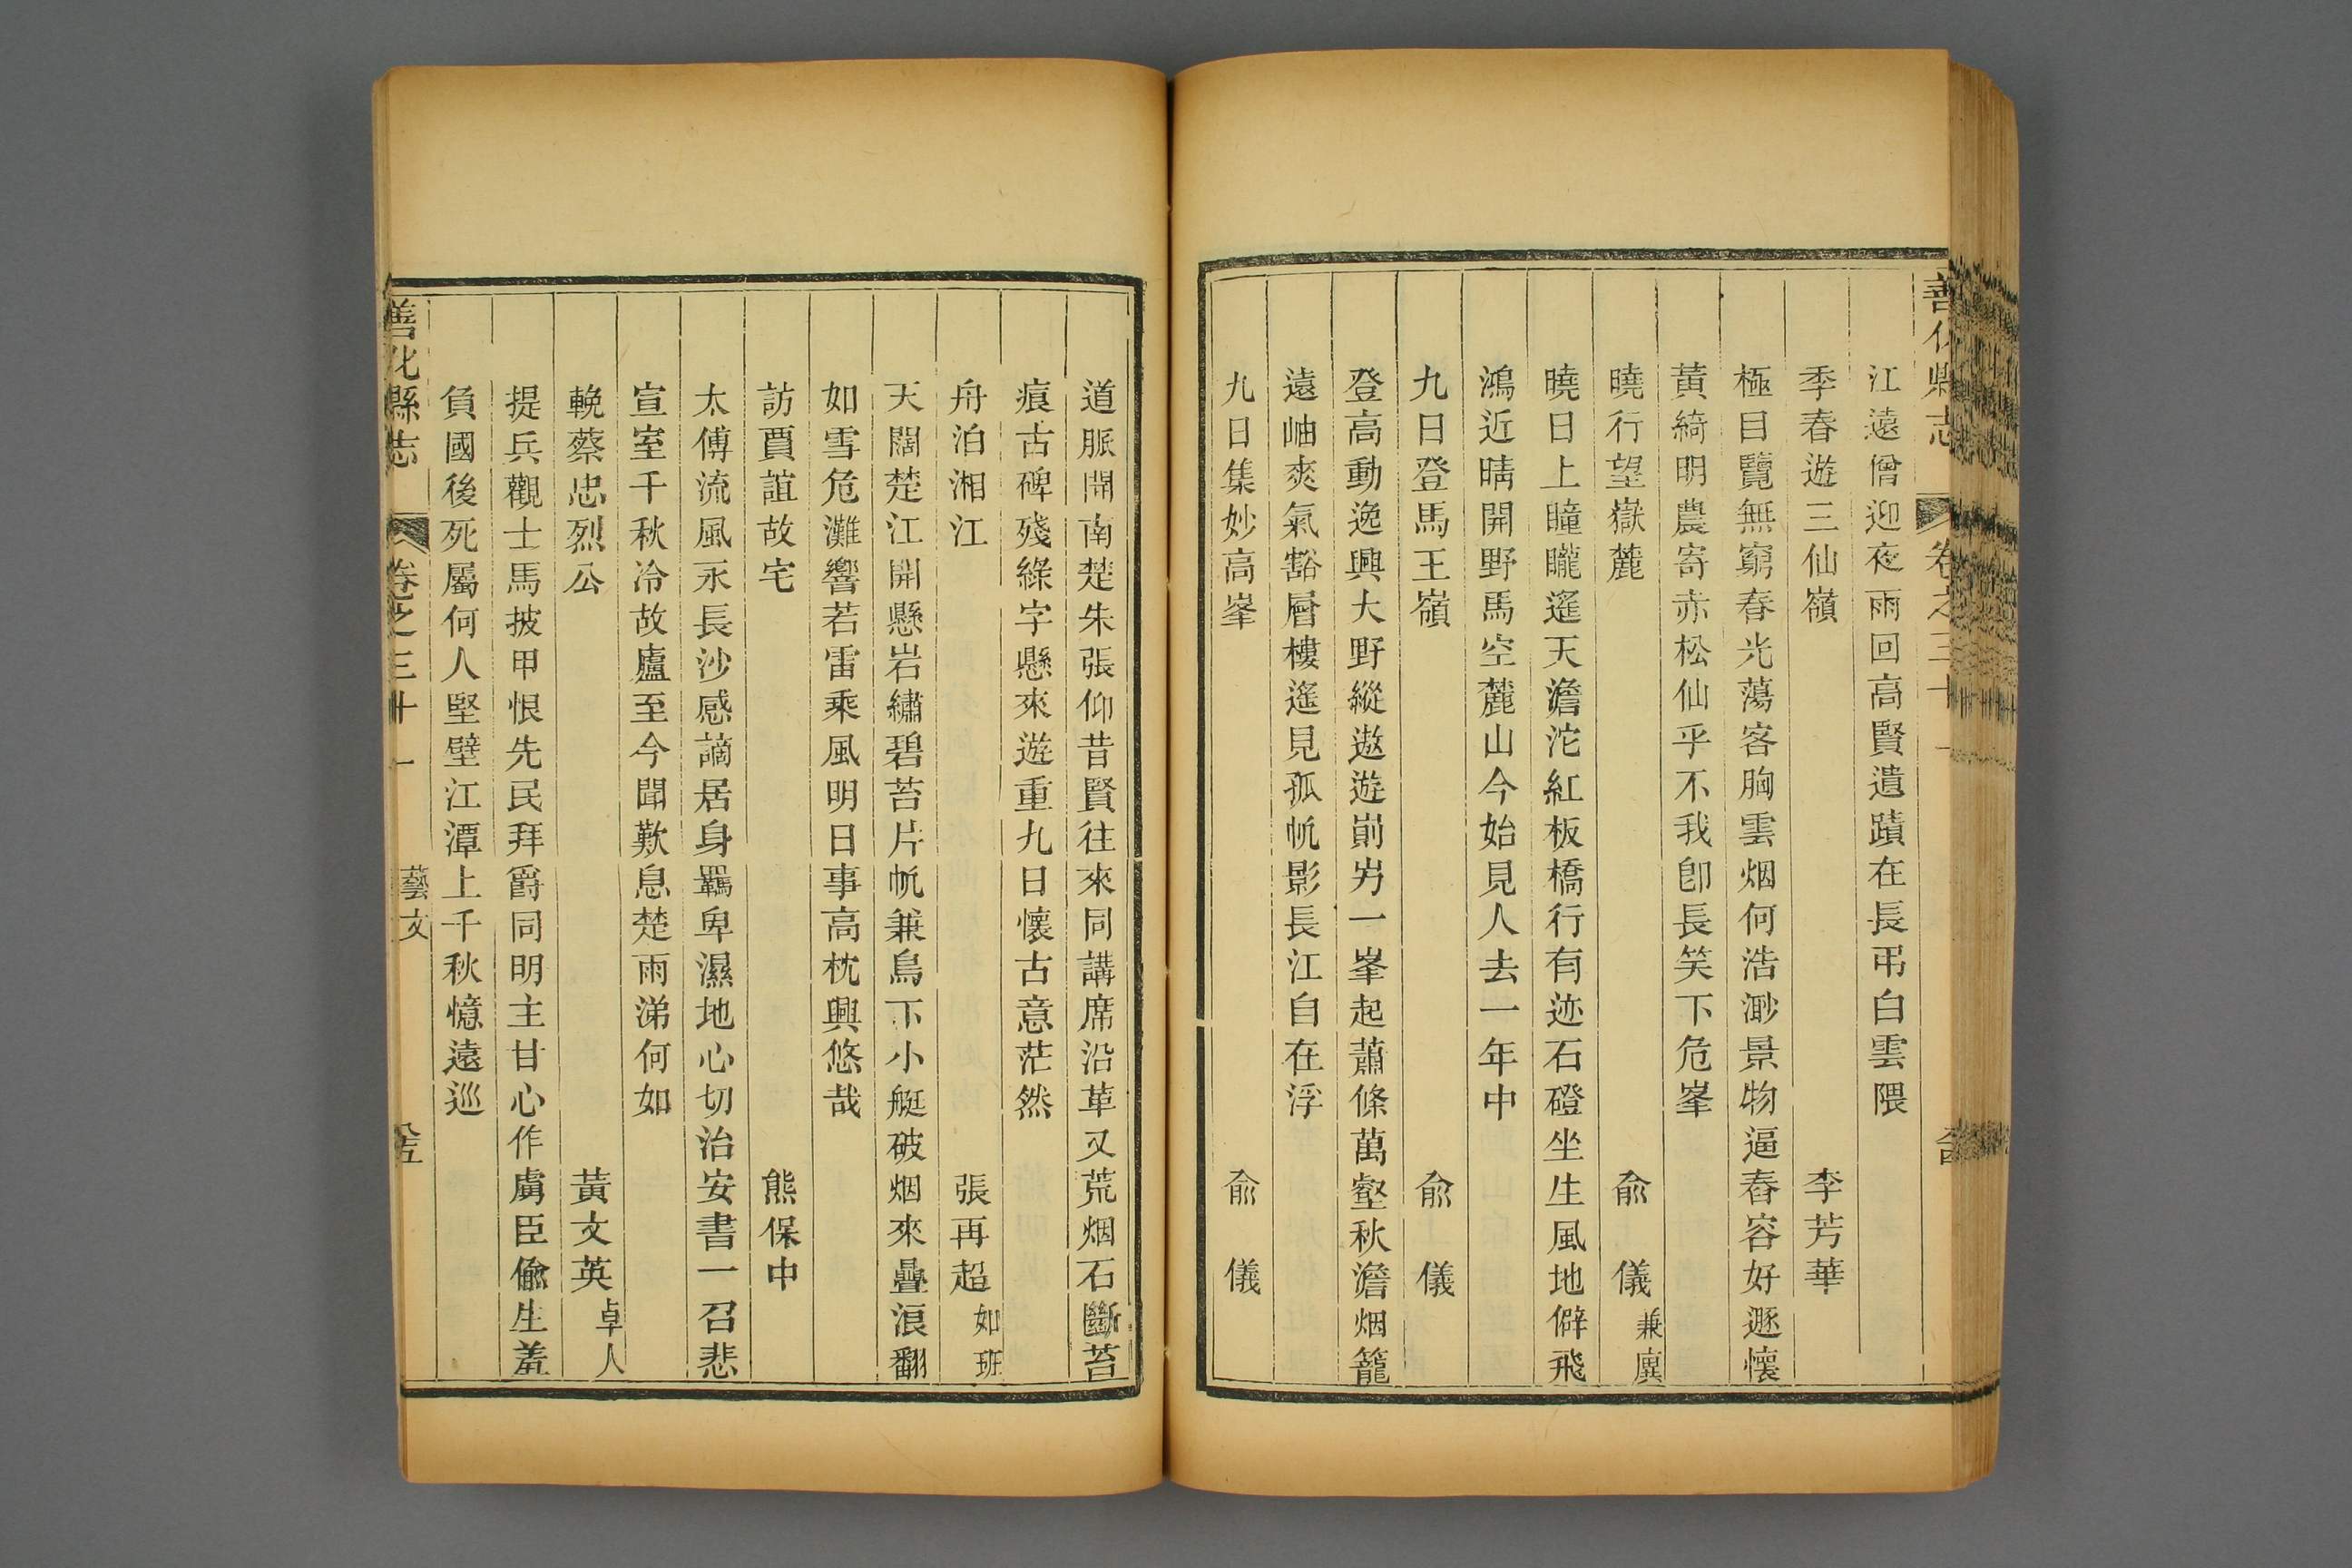 善化縣志 卷之三十 一
江遠僧迎夜雨回高賢遺蹟在長弔白雲隈
季春遊三仙嶺 李芳華
極目覽無窮春光蕩客胸雲烟何浩渺景物逼舂容好遯懷
黃綺明農寄赤松仙乎不我卽長笑下危峯
曉行望嶽麓 兪 儀 兼廙
曉日上瞳矓遙天澹沱紅板橋行有迹石磴坐生風地僻飛
鴻近晴開野馬空麓山今始見人去一年中
九日登馬王嶺 兪 儀
登高動逸興大野縱遨遊崱屴一峯起蕭條萬壑秋澹烟籠
遠岫爽氣豁層樓遙見孤帆影長江自在浮
九日集妙高峯 兪 儀
道脈開南楚朱張仰昔賢往來同講席沿革又荒烟石斷苔
痕古碑殘綠字懸來遊重九日懷古意茫然
舟泊湘江 張再超 如班
天闊楚江開懸岩繡碧苔片帆兼鳥下小艇破烟來疊浪翻
如雪危灘響若雷乘風明日事高枕興悠哉
訪賈誼故宅 熊保中
太傅流風永長沙感謫居身羈卑濕地心切治安書一召悲
宣室千秋冷故廬至今聞歎息楚雨涕何如
輓蔡忠烈公 黃文英 卓人
提兵觀士馬披甲恨先民拜爵同明主甘心作虜臣偸生羞
負國後死屬何人堅壁江潭上千秋憶遠巡
善化縣志 卷之三十一 藝文